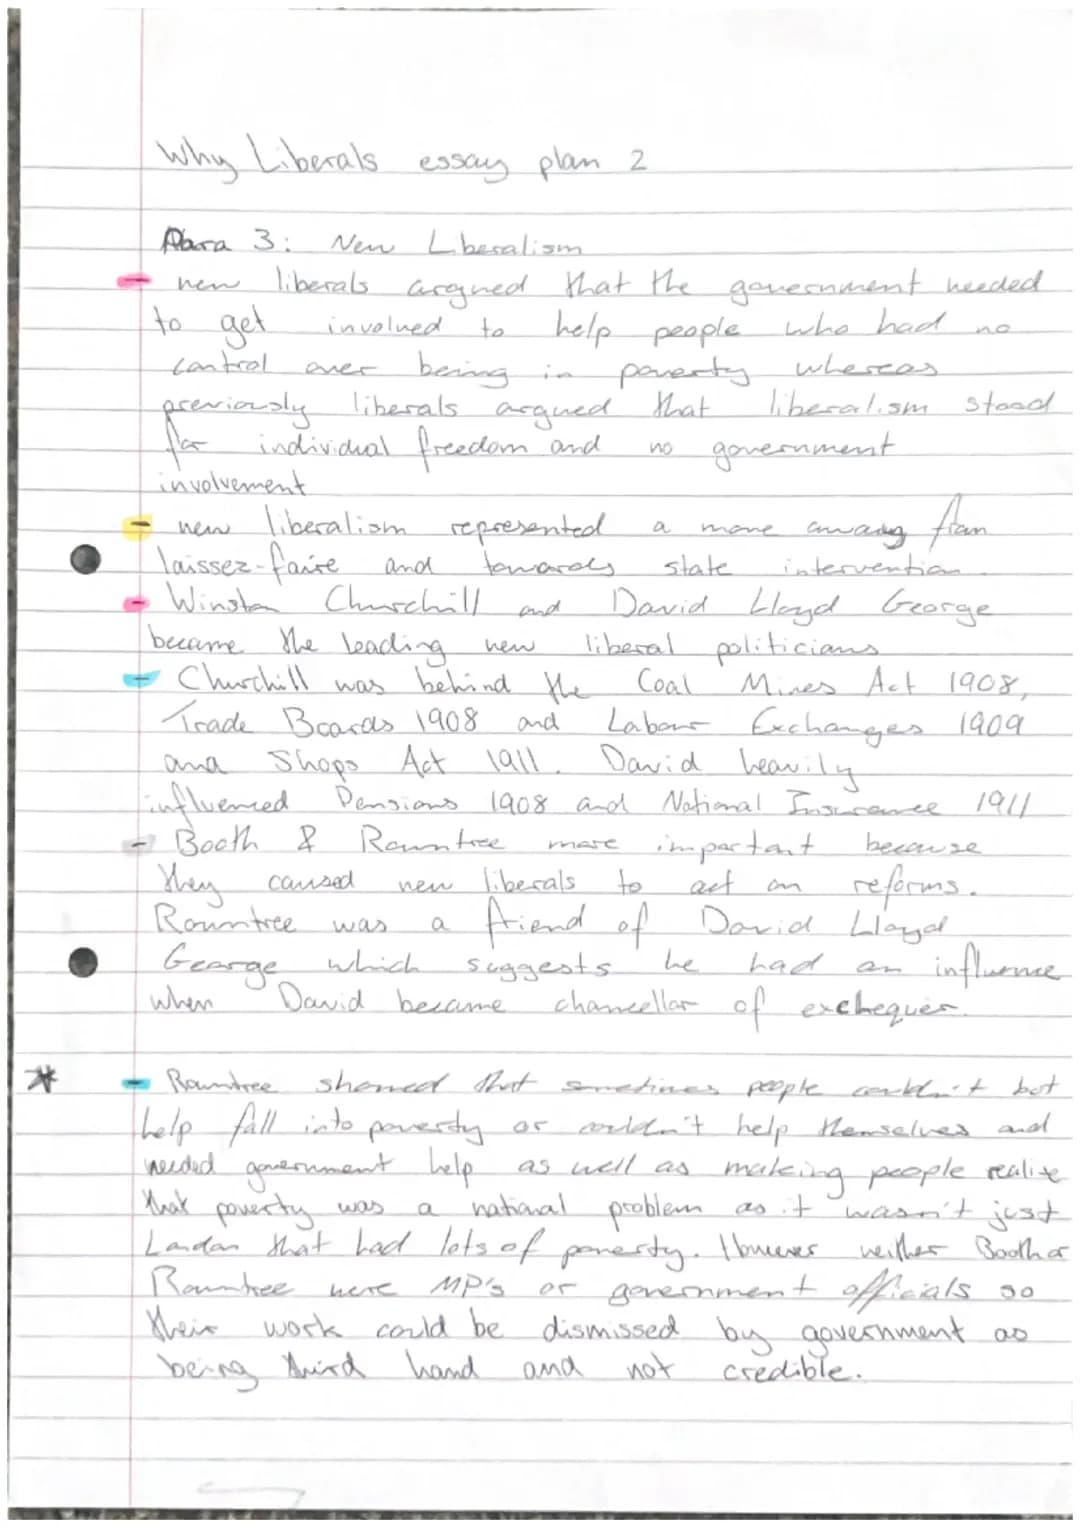 Why Liberals essay plan 2
Para 3: New Liberalism
- new liberals argued that the government needed
to get involved to help people who had no
control over being in poverty whereas
previously liberals argued that liberalism stood
for individual freedom and no government
involvement
- new liberalism represented a move away from
laissez-faire and towards state intervention.
- Winston Churchill and David Lloyd George
became the leading new liberal politicians
- Churchill was behind the Coal Mines Act 1908,
Trade Boards 1908 and Labour Exchanges 1909
and Shops Act 1911. David heavily
influenced Pensions 1908 and National Insurance 1911
- Booth & Rowntree more important because
they caused new liberals to act on reforms.
Rowntree was a friend of David Lloyd
George which suggests he had an influence
when David became chancellor of exchequer.
* - Rowntree showed that sometimes people couldn't but
help fall into poverty or couldn't help themselves and
needed government help as well as making people realise
that poverty was a national problem as it wasn't just
London that had lots of poverty. However neither Booth or
Rowntree were MP's or government officials so
their work could be dismissed by government as
being third hand and not credible.